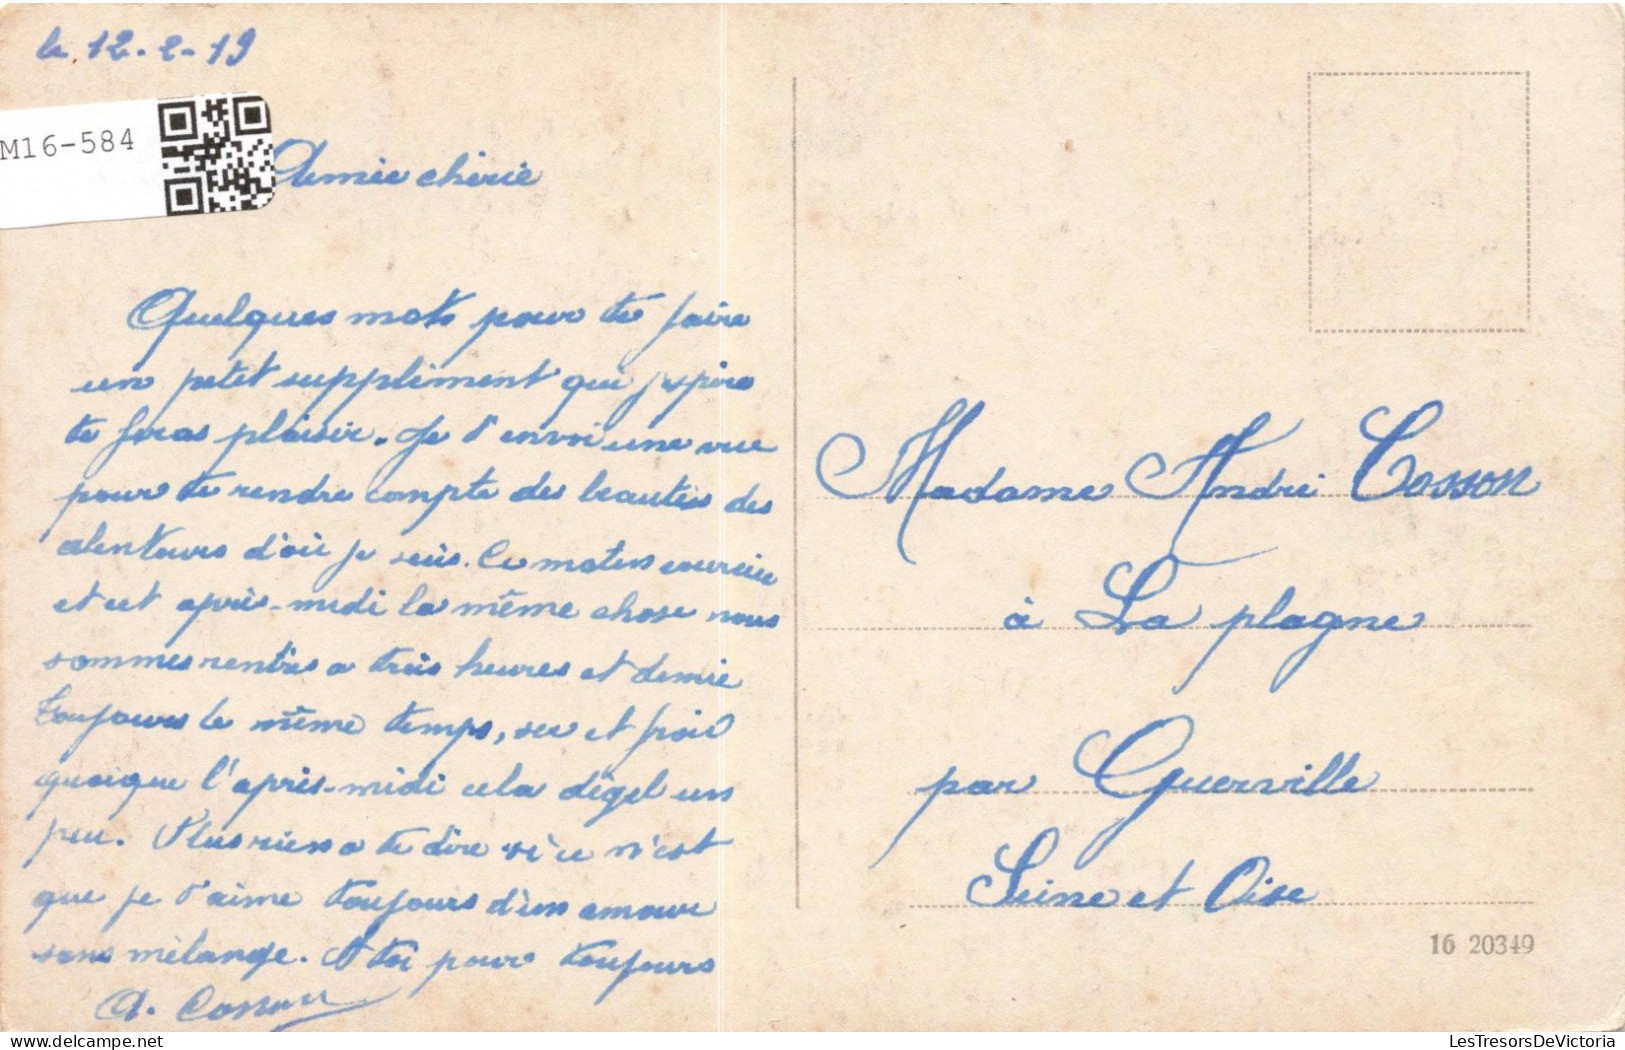 le 12-2-19
M16-584
Aimée chérie
Quelques mots pour te faire
un petit supplément qui j'espère
te feras plaisir. Je t'envoi une vue
pour te rendre compte des beautés des
alentours d'où je suis. Ce matin
et cet après-midi la même chose nous
sommes rentrés a trois heures et demie
toujours le même temps, sec et froid
quoique l'après-midi cela dégel un
peu. Plus rien a te dire si ce n'est
que je t'aime toujours d'un amour
sans mélange. A toi pour toujours
A. Cosson
Madame André Cosson
à La plagne
par Guerville
Seine et Oise
16 20349
LesTresorsDeVictoria